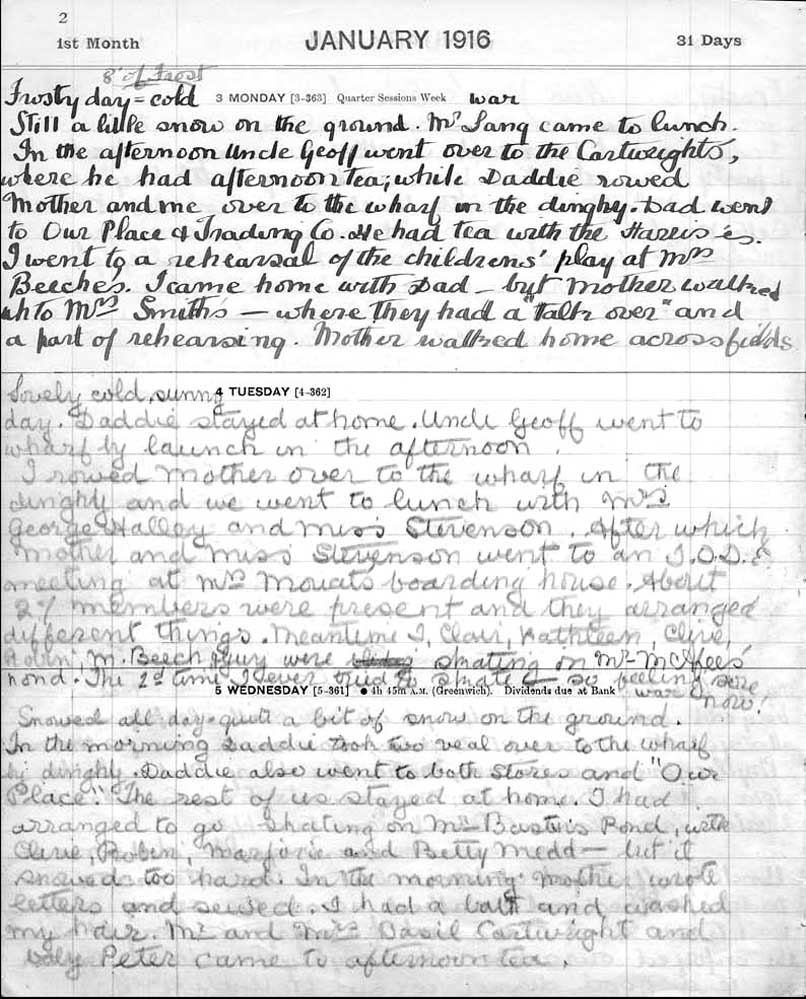 2
1st Month JANUARY 1916 31 Days
8° of Frost
Frosty day = cold 3 MONDAY [3-363] Quarter Sessions Week war
Still a little snow on the ground. Mr Lang came to lunch.
In the afternoon Uncle Geoff went over to the Cartwrights,
where he had afternoon tea; while Daddie rowed
Mother and me over to the wharf in the dinghy. Dad went
to Our Place & Trading Co. He had tea with the
I went to a rehearsal of the childrens' play at Mrs
Beeches. I came home with Dad - but Mother walked
up to Mrs Smith's - where they had a "talk over" and
a part of rehearsing. Mother walked home across fields
Lovely cold, sunny 4 TUESDAY [4-362]
day. Daddie stayed at home. Uncle Geoff went to
wharf by launch in the afternoon.
I rowed Mother over to the wharf in the
dinghy and we went to lunch with Mrs
George Halley and Miss Stevenson. After which
Mother and Miss Stevenson went to an I.O.D.E
meeting at Mrs Mouats boarding house. About
27 members were present and they arranged
different things. Meantime I, Clair, Kathleen, Clive,
Robin, M. Beech Guy were skating on Mr McAfees'
pond. The 2d time I ever tried to skate & so feeling sore
now!
5 WEDNESDAY [5-361] ● 4h 45m A.M. (Greenwich). Dividends due at Bank war
Snowed all day - quite a bit of snow on the ground.
In the morning Daddie took two veal over to the wharf
by dinghy. Daddie also went to both stores and "Our
Place". The rest of us stayed at home. I had
arranged to go skating on Mr Pond, with
Clive, Robin, Marjorie and Betty Medd - but it
snowed too hard. In the morning Mother wrote
letters and sewed. I had a bath and washed
my hair. Mr and Mrs Basil Cartwright and
baby Peter came to afternoon tea.